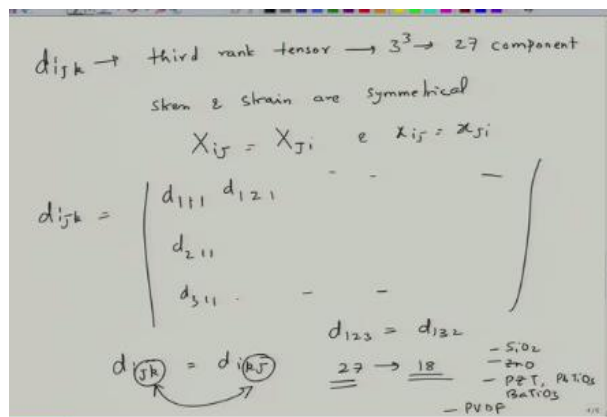 dijk → third rank tensor → 3³ → 27 component
stress & strain are symmetrical
Xij = Xji & xij = xji
dijk = | d111 d121 - - —
d211
d311 . - -
d123 = d132
dijk = dikj 27 → 18
- SiO2
- ZnO
- PZT, PbTiO3
BaTiO3
- PVDF